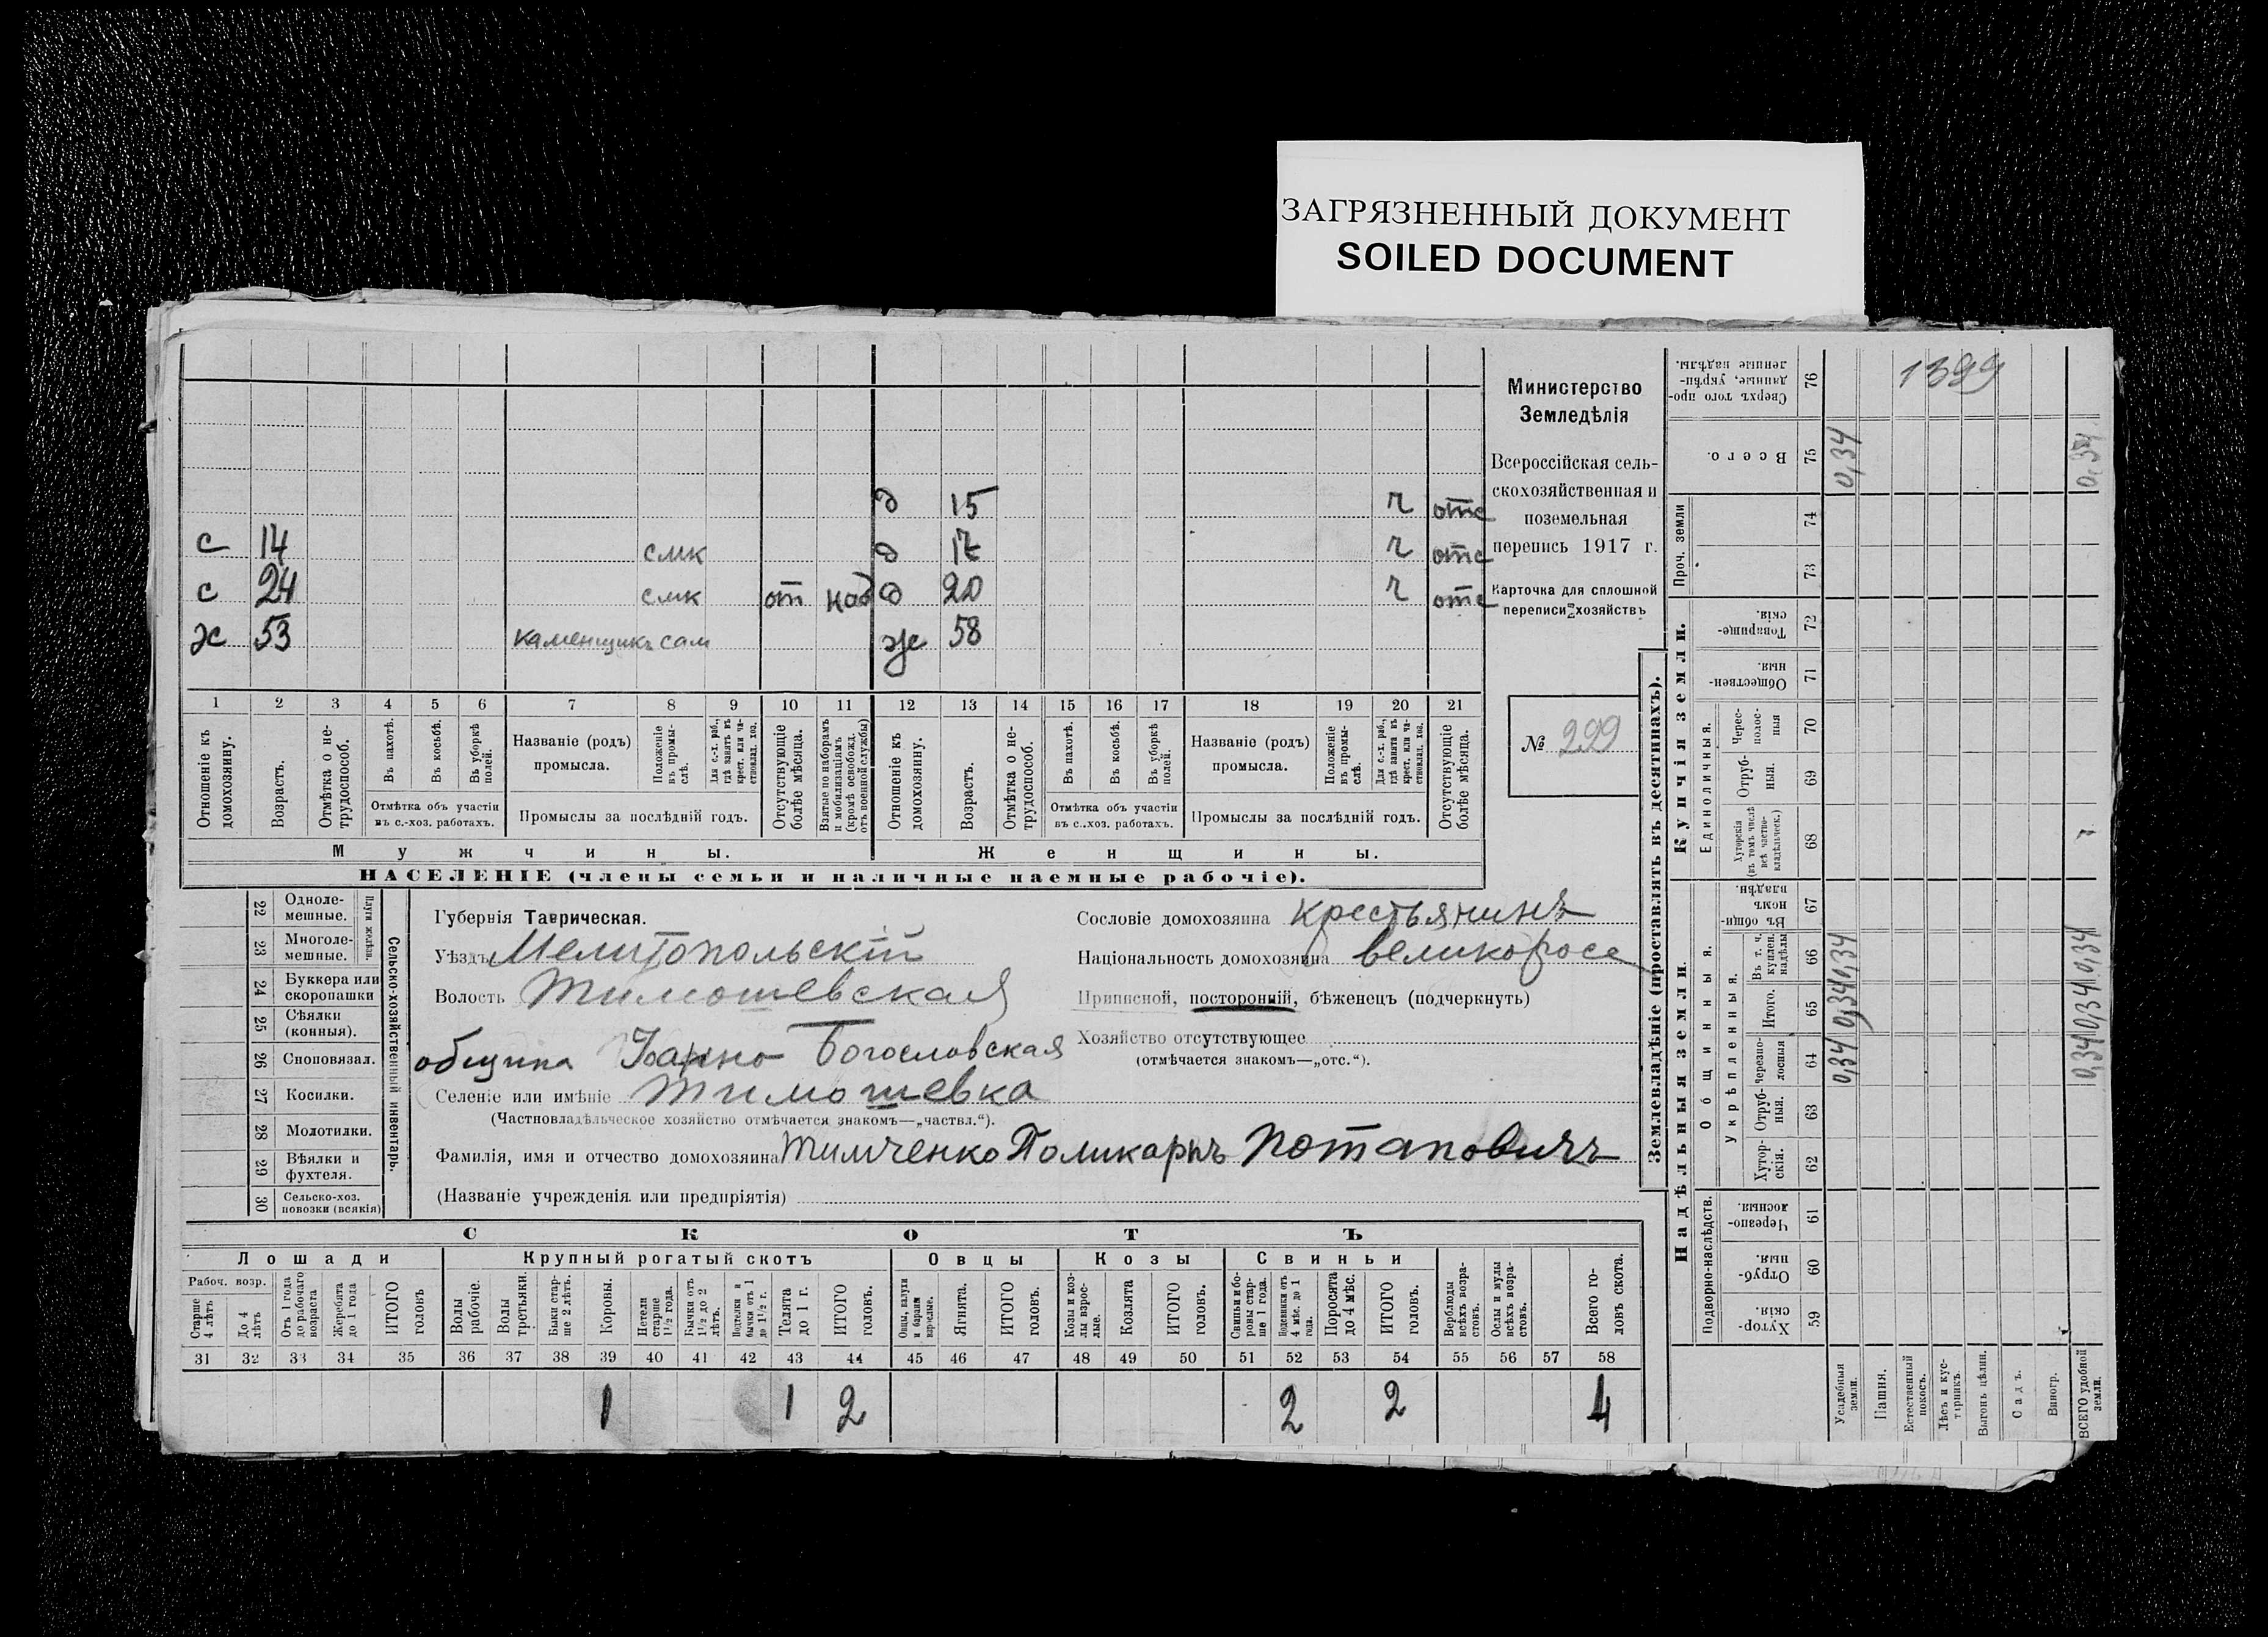 ЗАГРЯЗНЕННЫЙ ДОКУМЕНТ
SOILED DOCUMENT
д 15 отс
с 14 смк д отс
с 24 смк от наб д 20 отс
х 53 каменщикъ сам же 58
1 2 3 4 5 6 7 8 9 10 11 12 13 14 15 16 17 18 19 20 21
Отношеніе къ домохозяину.
Возрастъ.
Отмѣтка о нетрудоспособ.
Въ пахотѣ.
Въ косьбѣ.
Въ уборкѣ полей.
Отмѣтка объ участіи въ с.-хоз. работахъ.
Названіе (родъ) промысла.
Положеніе въ промыслѣ.
Для с.-х. раб., гдѣ занятъ въ крест. или частновлад. хоз.
Промыслы за послѣдній годъ.
Отсутствующіе болѣе мѣсяца.
Взятые по наборамъ и мобилизаціямъ (кромѣ освобожд. отъ военной службы)
Отношеніе къ домохозяину.
Возрастъ.
Отмѣтка о нетрудоспособ.
Въ пахотѣ.
Въ косьбѣ.
Въ уборкѣ полей.
Отмѣтка объ участіи въ с.-хоз. работахъ.
Названіе (родъ) промысла.
Положеніе въ промыслѣ.
Для с.-х. раб., гдѣ занята въ крест. или частновлад. хоз.
Промыслы за послѣдній годъ.
Отсутствующіе болѣе мѣсяца.
Мужчины. Женщины.
НАСЕЛЕНІЕ (члены семьи и наличные наемные рабочіе).
Министерство
Земледѣлія
Всероссійская сель-
скохозяйственная и
поземельная
перепись 1917 г.
Карточка для сплошной
переписи хозяйствъ
№ 299
22 Одноле-мешные.
23 Многоле-мешные.
Плуги желѣзн.
24 Буккера или скоропашки
25 Сѣялки (конныя).
26 Сноповязал.
27 Косилки.
28 Молотилки.
29 Вѣялки и фухтеля.
30 Сельско-хоз. повозки (всякія)
Сельско-хозяйственный инвентарь.
Губернія Таврическая.
Уѣздъ Мелитопольскій
Волость Тимошевская
община Іоанно Богословская
Селеніе или имѣніе Тимошевка
(Частновладѣльческое хозяйство отмѣчается знакомъ—„частвл.“).
Фамилія, имя и отчество домохозяина Тимченко Поликарпъ Потаповичъ
(Названіе учрежденія или предпріятія)
Сословіе домохозяина крестьянинъ
Національность домохозяина великоросс
Приписной, посторонній, бѣженецъ (подчеркнуть)
Хозяйство отсутствующее
(отмѣчается знакомъ—„отс.“).
СКОТЪ
Лошади Крупный рогатый скотъ Овцы Козы Свиньи
Рабоч. возр.
Старше 4 лѣтъ
До 4 лѣтъ
Отъ 1 года до рабочаго возраста
Жеребята до 1 года
ИТОГО головъ
Волы рабочіе.
Волы третьяки.
Быки старше 2 лѣтъ.
Коровы.
Нетели старше 1½ года.
Бычки отъ 1½ до 2 лѣтъ.
Подтелки и бычки отъ 1 до 1½ г.
Телята до 1 г.
ИТОГО головъ.
Овцы, валухи и бараны взрослые.
Ягнята.
ИТОГО головъ.
Козы и козлы взрослые.
Козлята
ИТОГО головъ.
Свиньи и боровы старше 1 года.
Подсвинки отъ 4 мѣс. до 1 года.
Поросята до 4 мѣс.
ИТОГО головъ.
Верблюды всѣхъ возрастовъ.
Ослы и мулы всѣхъ возрастовъ.
Всего головъ скота.
31 32 33 34 35 36 37 38 39 40 41 42 43 44 45 46 47 48 49 50 51 52 53 54 55 56 57 58
1 1 2 2 2 4
Землевладѣніе (проставлять въ десятинахъ).
Надѣльныя земли. Купчія земли.
Подворно-наслѣдств.
Общинныя.
Укрѣпленныя.
Единоличныя.
Проч. земли
Хуторскія. 59
Отрубныя. 60
Черезполосныя. 61
Хуторскія. 62
Отрубныя. 63
Черезполосныя 64
Итого. 65
Въ т. ч. куплен. надѣлы 66
Въ общинномъ владѣн. 67
Хуторскія (въ томъ числѣ всѣ частновладѣльческ.) 68
Отрубныя. 69
Черезполосныя 70
Общественныя. 71
Товарищескія. 72
73
74
Всего. 75
Сверхъ того проданные, укрѣпленные надѣлы. 76
1399
Усадебныя земли. 0,34 0,34 0,34 0,34
Пашня.
Естественный покосъ.
Лѣсъ и кустарникъ.
Выгонъ цѣлин.
Садъ.
Виногр.
ВСЕГО удобной земли. 0,34 0,34 0,34 0,34